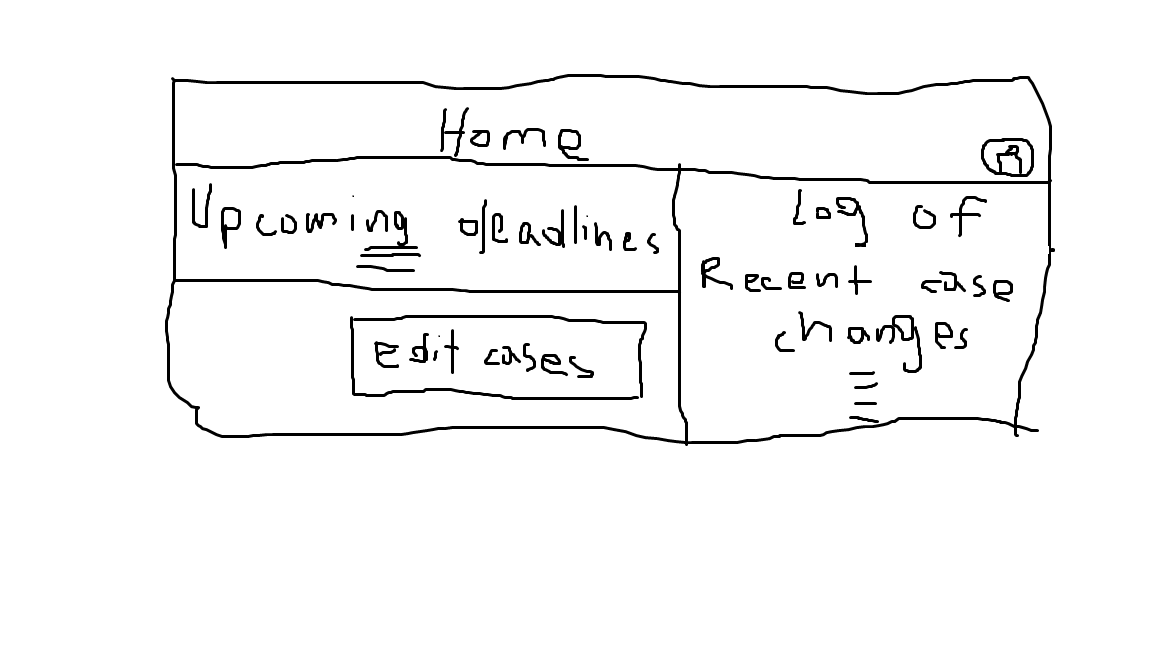 Home
Upcoming deadlines
Edit cases
Log of
Recent case
changes